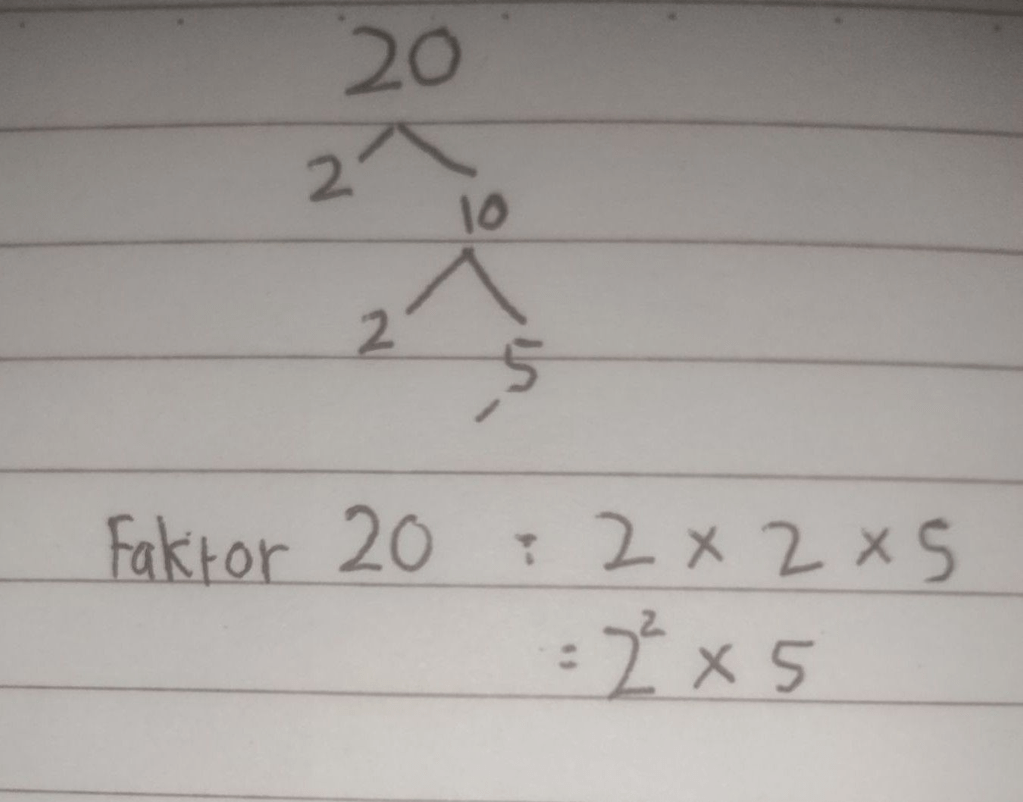 20
2
10
2
5
Faktor 20 : 2 × 2 × 5
= 2² × 5